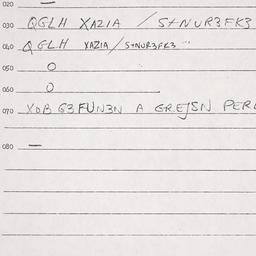 020 —
030 QGLH XAZIA / S+NUR3FK3
040 QGLH XAZIA / S+NUR3FK3
050 O
060 O
070 XOB G3FUN3N A GREJSN PER
080 —